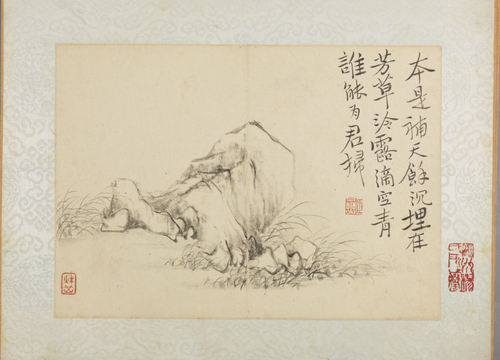 本是補天餘沉埋在
芳草泠露滴空青
誰能為君掃